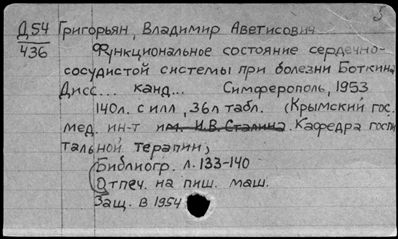 Д54 Григорьян, Владимир Аветисович
436 Функциональное состояние сердечно-
сосудистой системы при болезни Боткина
Дисс... канд... Симферополь, 1953
140л. с илл, 36л табл. (Крымский гос.
мед. ин-т им. И.В. Сталина. Кафедра госпи
тальной терапии)
Библиогр. л. 133-140
Отпеч. на пиш. маш.
Защ. в 1954